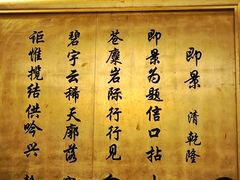 即景 清 乾隆
即景为题信口拈
苍麋岩际行行见
碧宇云稀天廓落
讵惟揽结供吟兴